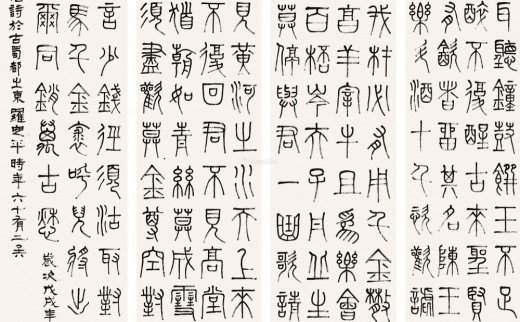 耳聽鐘饌玉不足
醉不復醒古來聖賢
有飲者留其名陳王
樂斗酒十千恣歡謔
我材必有用千金散
高羊宰牛且為樂會
百杯岑夫子丹丘生
莫停與君一曲歌請
見黃河之水天上來
不復回君不見高堂
朝如青絲莫成雪
須盡歡莫金尊空對
言少錢徑須沽取對
馬千金裘呼兒將出
爾同銷萬古愁 歲次戊戌年
詩於古蜀都之東 羅忠平時年六十有二矣